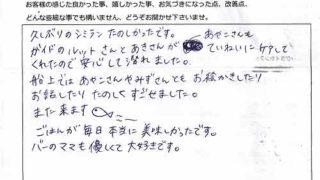 お客様の感じた良かった事、嬉しかった事、お気づきになった点、改善点、
どんな些細な事でも構いません、どうぞお聞かせ下さいませ。
久しぶりのシミラン たのしかったです。
あやこさんも
ガイドのルットさんとあきさんが ていねいにケアして
くれたので安心して潜れました。
船上ではあやこさんやみずさんともお絵かきしたり
お話したり たのしく すごせました。
また来ます
ごはんが毎日本当に美味しかったです。
バーのママも優しくて大好きです。